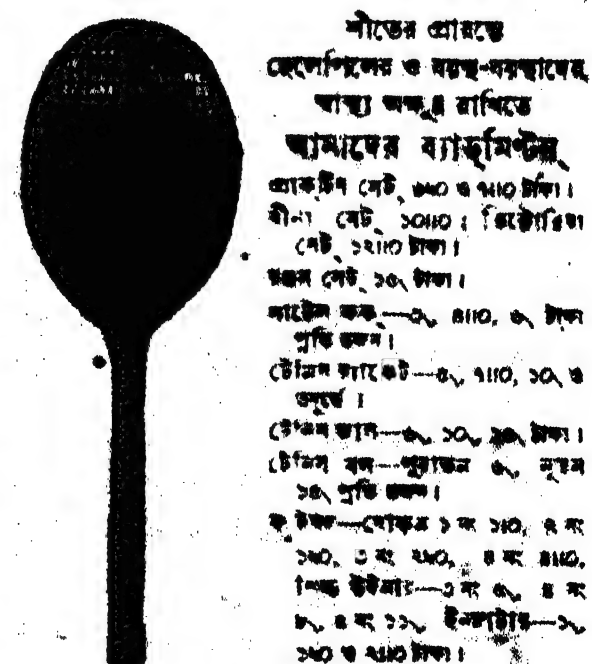 শীতের প্রারম্ভে
ছেলেপিলের ও বয়স্থ-বয়স্থাদের
স্বাস্থ্য অক্ষুণ্ণ রাখিতে
আমাদের ব্যাড্‌মিণ্টন্
প্র্যাকটিস সেট্ ও ৭৷৷০ টাকা।
বীনা সেট্ ১০৷৷০; ভিক্টোরিয়া
সেট্ ১২৷৷০ টাকা।
সেট্ ১৫৲ টাকা।
সাটেল কক্—৩৲, ৪৷৷০, ৬৲ টাকা
প্রতি ডজন।
টেনিস র‍্যাকেট—৫৲, ৭৷৷০, ১০৲ ও
তদূর্দ্ধে।
টেনিস জাল—৬৲, ১০৲, ১৫৲ টাকা।
টেনিস বল—পুরাতন ৬৲, নূতন
১৫৲ প্রতি ডজন।
ফুটবল— ১ নং ১৷০, ২ নং
১৸০, ৩ নং ২৸০, ৪ নং ৪৷৷০,
উইনার—৩ নং ৪ নং
৫ নং ১১৲, ইনফ্লাটার—১৲,
১৸০ ও ২৷৷০ টাকা।